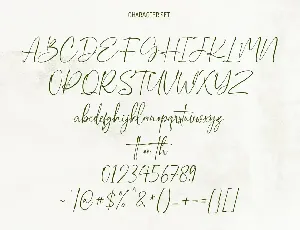 CHARACTER SET
ABCDEFGHIJKLMN
OPQRSTUVWXYZ
abcdefghijklmnopqrstuvwxyz
tt on th
0123456789
~`|@#$%^&*()_+-=[][]